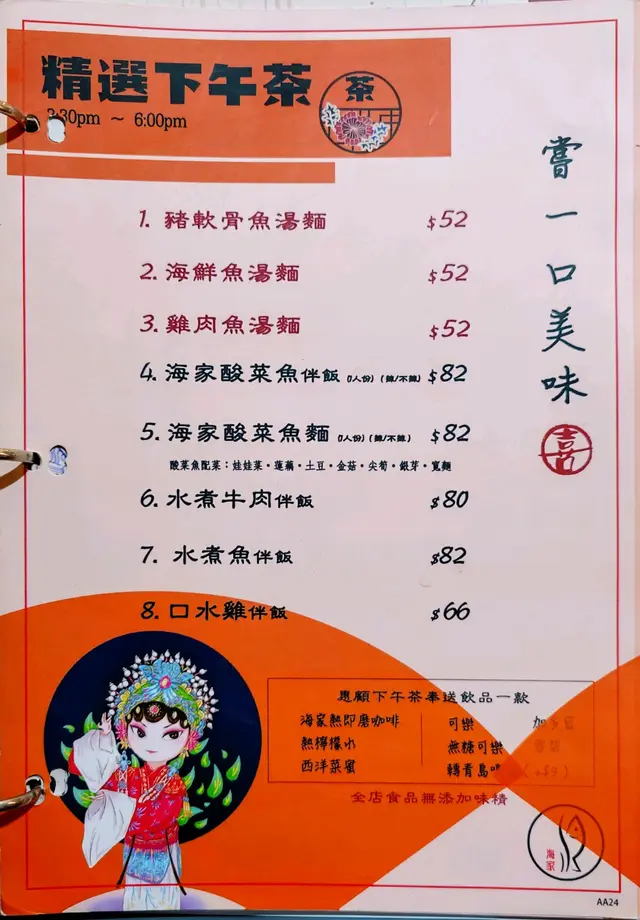 精選下午茶
茶
3:30pm ～ 6:00pm
嘗一口美味
1. 豬軟骨魚湯麵 $52
2. 海鮮魚湯麵 $52
3. 雞肉魚湯麵 $52
4. 海家酸菜魚伴飯 (1人份) (辣/不辣) $82
5. 海家酸菜魚麵 (1人份) (辣/不辣) $82
酸菜魚配菜：娃娃菜・蓮藕・土豆・金菇・尖筍・銀芽・寬麵
6. 水煮牛肉伴飯 $80
7. 水煮魚伴飯 $82
8. 口水雞伴飯 $66
惠顧下午茶奉送飲品一款
海家熱即磨咖啡 可樂
熱檸檬水 無糖可樂
西洋菜蜜 轉青島啤 (+$9)
全店食品無添加味精
海家
AA24